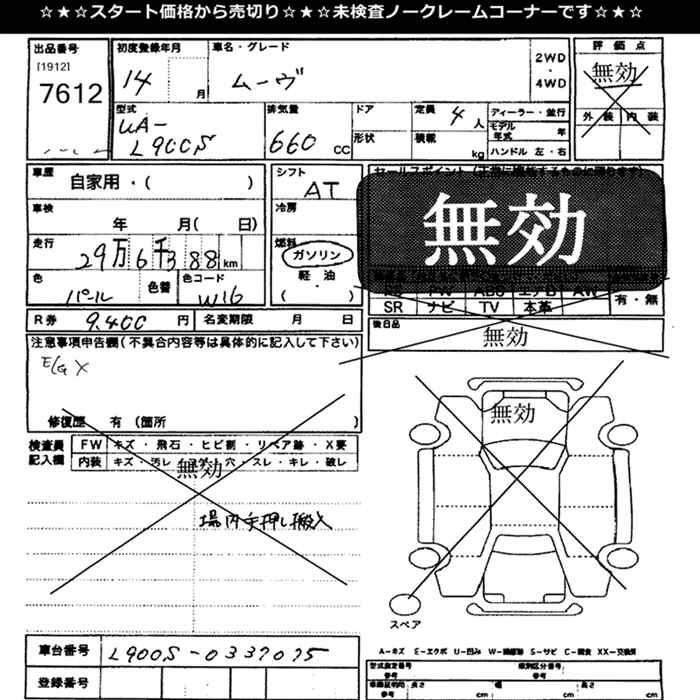 ☆★☆スタート価格から売切り☆★☆未検査ノークレームコーナーです☆★☆
出品番号
[1912]
7612
初度登録年月
14 月
車名・グレード
ムーヴ
2WD
・
4WD
評価点
無効
外装 内装
型式
UA-
L900S
排気量
660 CC
ドア
形状
定員 4 人
積載 kg
ディーラー・並行
モデル年式 年
ハンドル 左・右
車歴
自家用・( )
車検
年 月( 日)
走行
29万6千388km
色
パール
色替
色コード
W16
シフト
AT
冷房
燃料
ガソリン
軽油
( )
無効
SR ナビ TV 本革
有・無
R券 9.400 円
名変期限 月 日
後日品
無効
注意事項申告欄(不具合内容等は具体的に記入して下さい)
E/G X
修復歴 有 (箇所 )
検査員記入欄
FW キズ・飛石・ヒビ割・リペア跡・X要
内装 キズ・汚レ・コゲ・穴・スレ・キレ・破レ
無効
場内手押し搬入
無効
スペア
車台番号
L900S-0337075
登録番号
A-キズ E-エクボ U-凹み W-補修跡 S-サビ C-腐食 XX-交換済
型式指定番号
参考
類別区分番号
車両証明内
参考
長さ cm
幅 cm
高さ cm